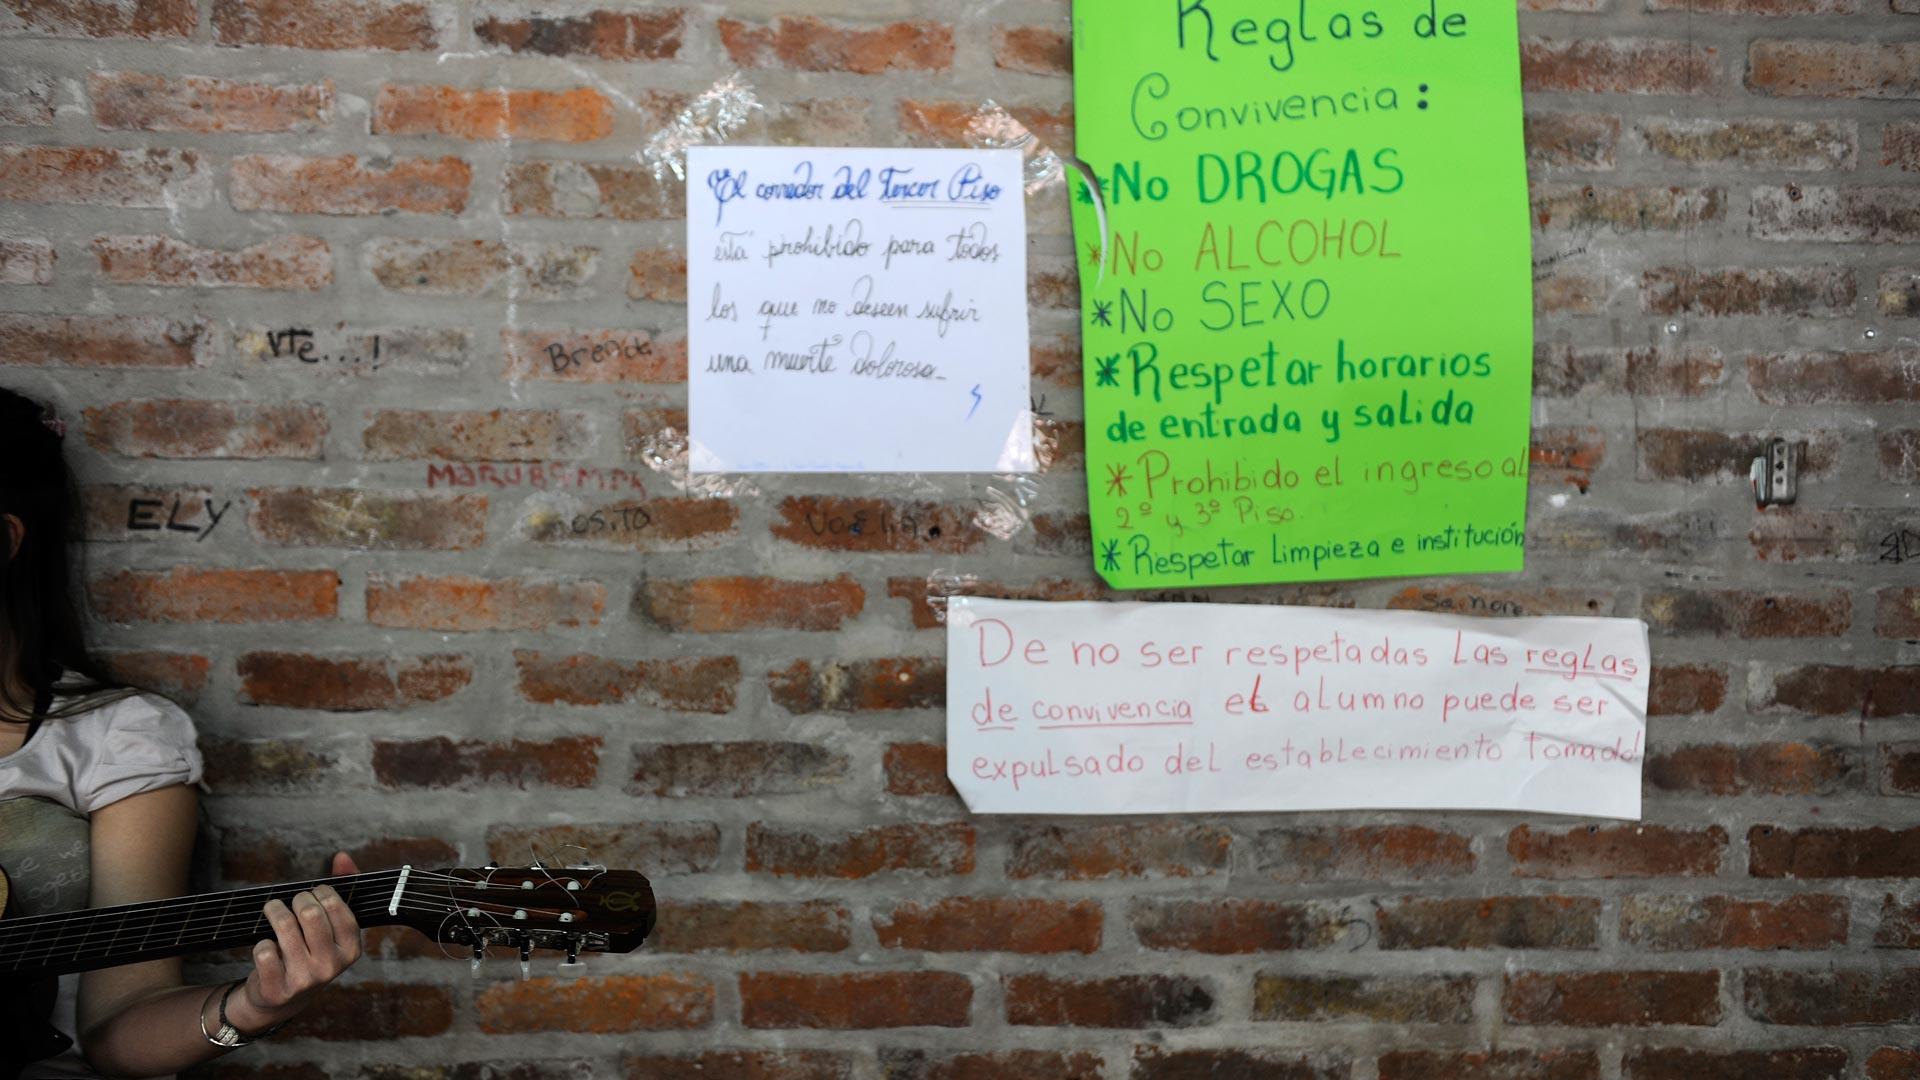 Reglas de
Convivencia:
*No DROGAS
*No ALCOHOL
*No SEXO
*Respetar horarios
de entrada y salida
*Prohibido el ingreso al
2º y 3º Piso.
*Respetar Limpieza e institución
El corredor del Tercer Piso
está prohibido para todos
los que no deseen sufrir
una muerte dolorosa_
De no ser respetadas Las reglas
de convivencia el alumno puede ser
expulsado del establecimiento tomado!
VTe...!
ELY